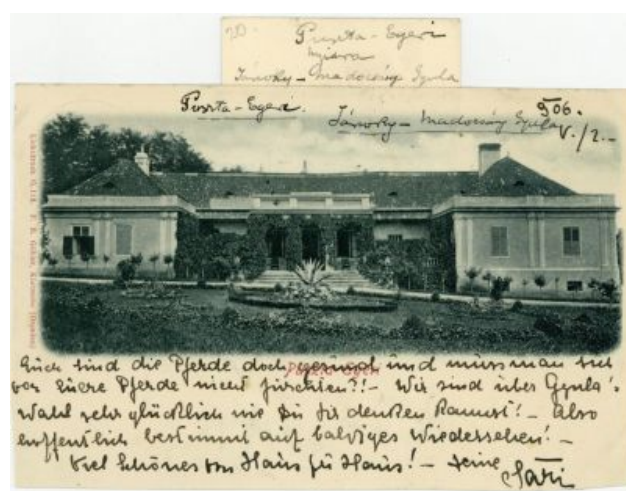 Puszta-Egeri
nyiara
Jánoky - Madocsány Gyula
Puszta-Egeri.
Jánoky - Madocsány Gyula
906.
V./2.-
Puszta-Egeri
Euch sind die Pferde doch gesund und muss man sich
von Euere Pferde nicht fürchten?! - Wir sind über Gyula's
Wahl sehr glücklich wie Du Dir denken kannst! - Also
hoffentlich bestimmt auf baldiges Wiedersehen! -
Viel Schönes von Haus zu Haus! - Deine
Sári